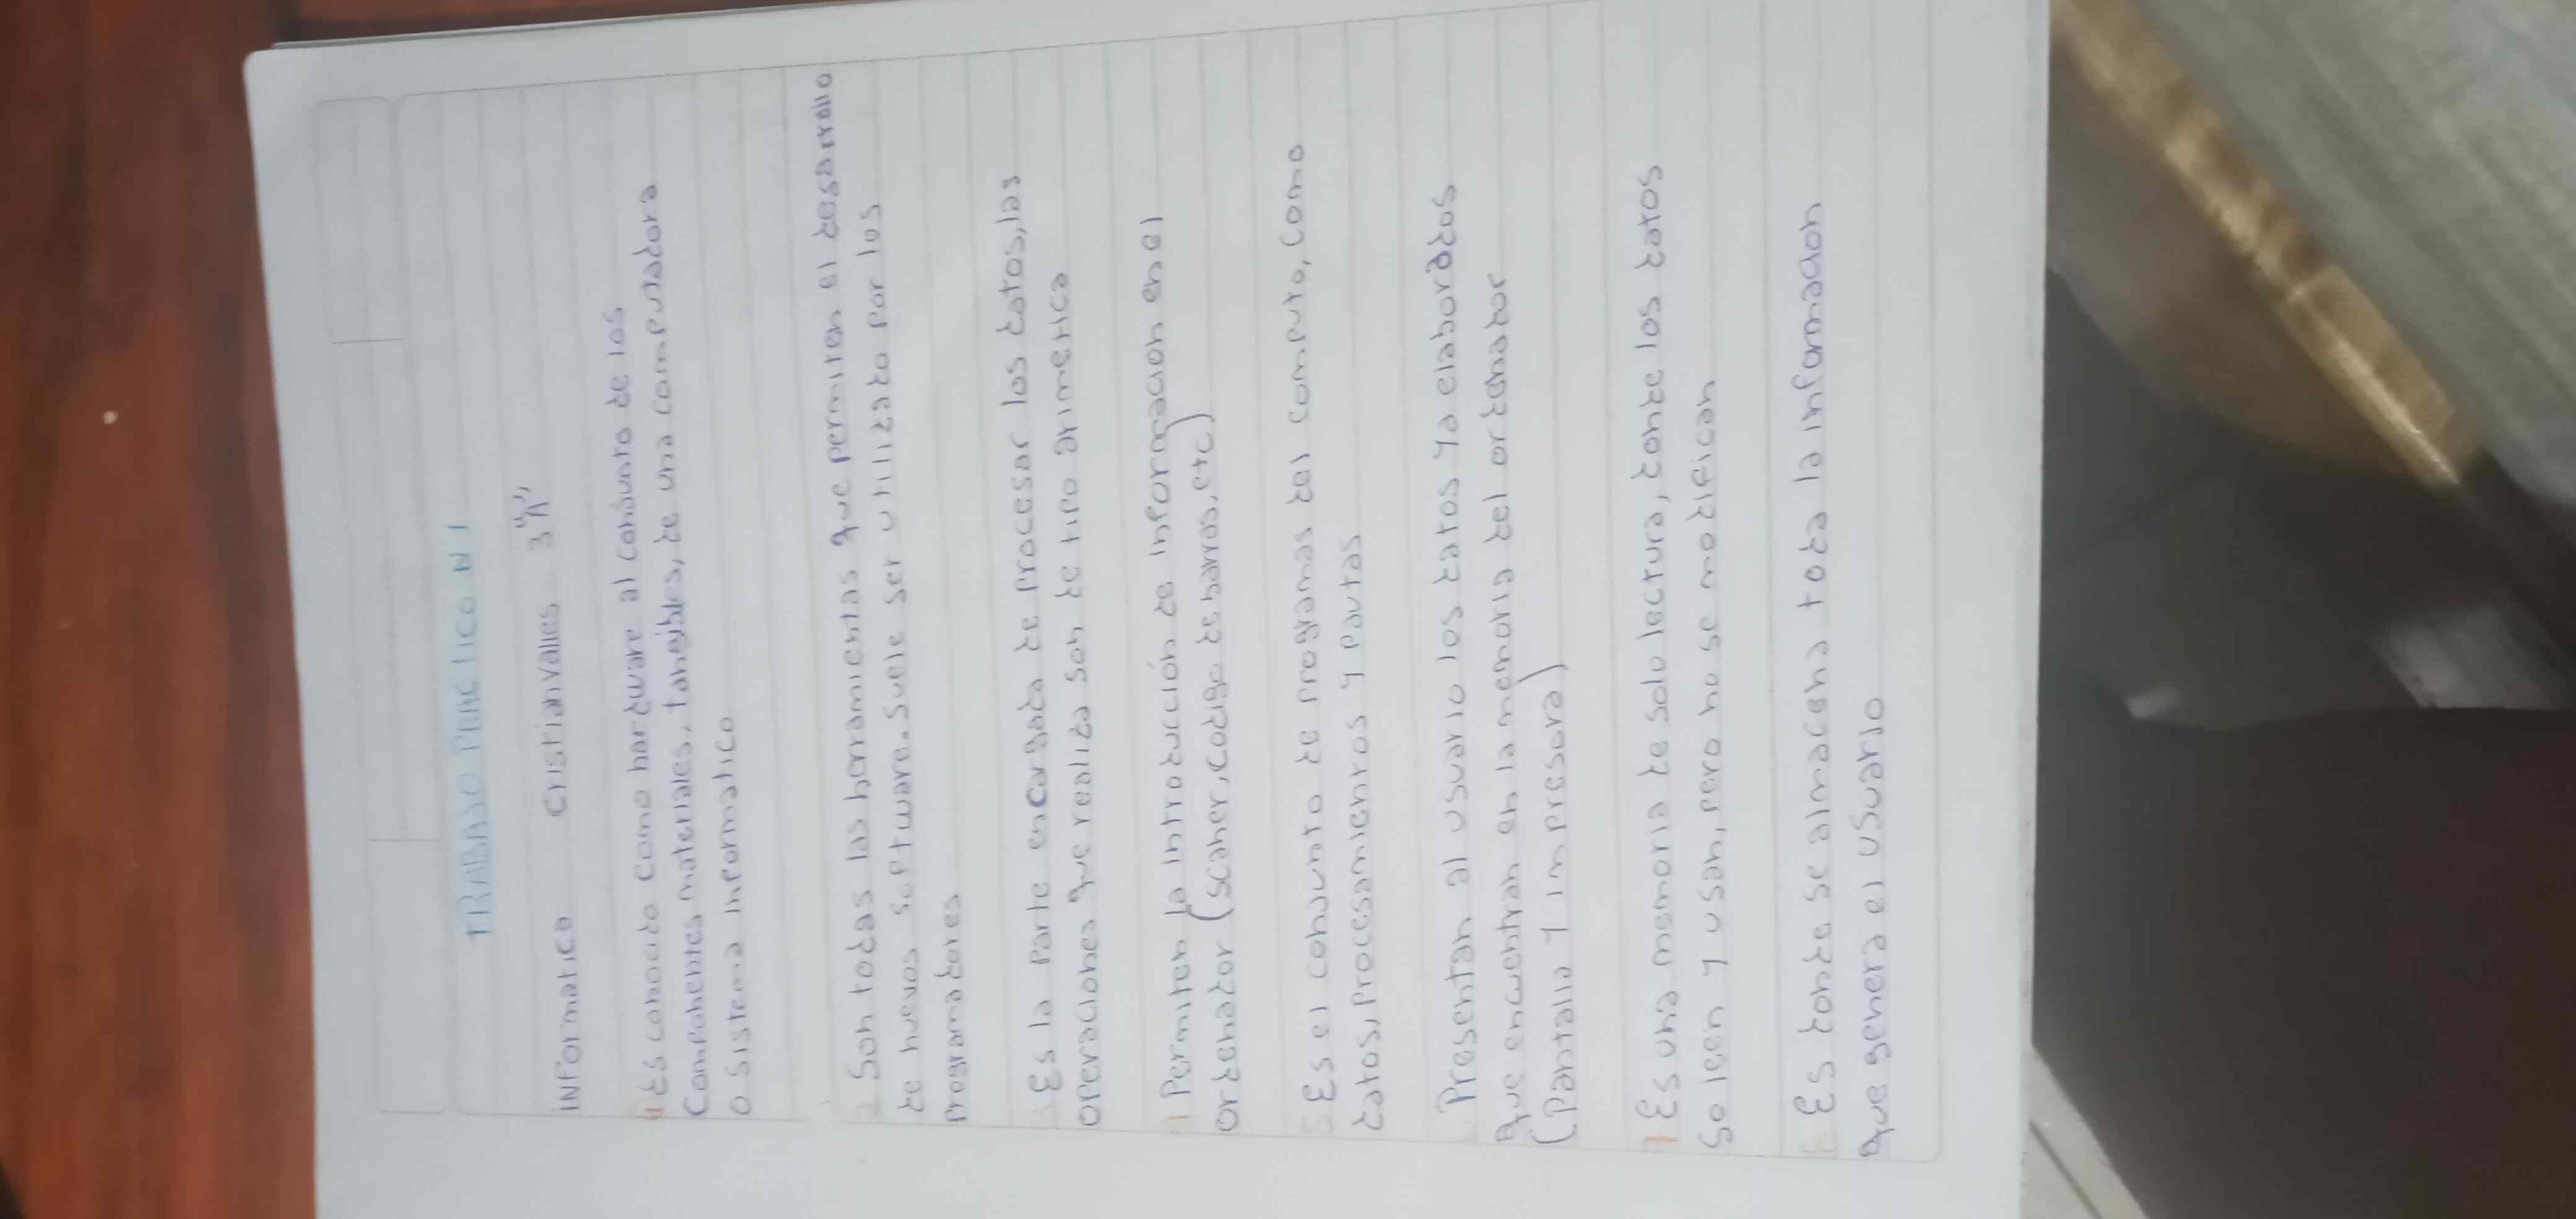 TRABAJO PRACTICO N 1
INFORMATICA cristian valles 3 "A"
1 Es conocido como hardware al conjunto de los
Componentes materiales, tangibles, de una computadora
o sistema informatico
2 Son todas las herramientas que permiten el desarrollo
de nuevos software. Suele ser utilizado por los
programadores
3 Es la parte encargada de procesar los datos, las
operaciones que realiza son de tipo aritmetica
4 Permiten la introducción de informacion en el
ordenador (scaner, codigo de barras, etc)
5 Es el conjunto de programas del computo, como
datos, Procesamientos y pautas
Presentan al usuario los datos ya elaborados
que encuentran en la memoria del ordenador
(Pantalla y impresora)
7 Es una memoria de solo lectura, donde los datos
se leen y usan, pero no se modifican
8 Es donde se almacena toda la informacion
que genera el usuario